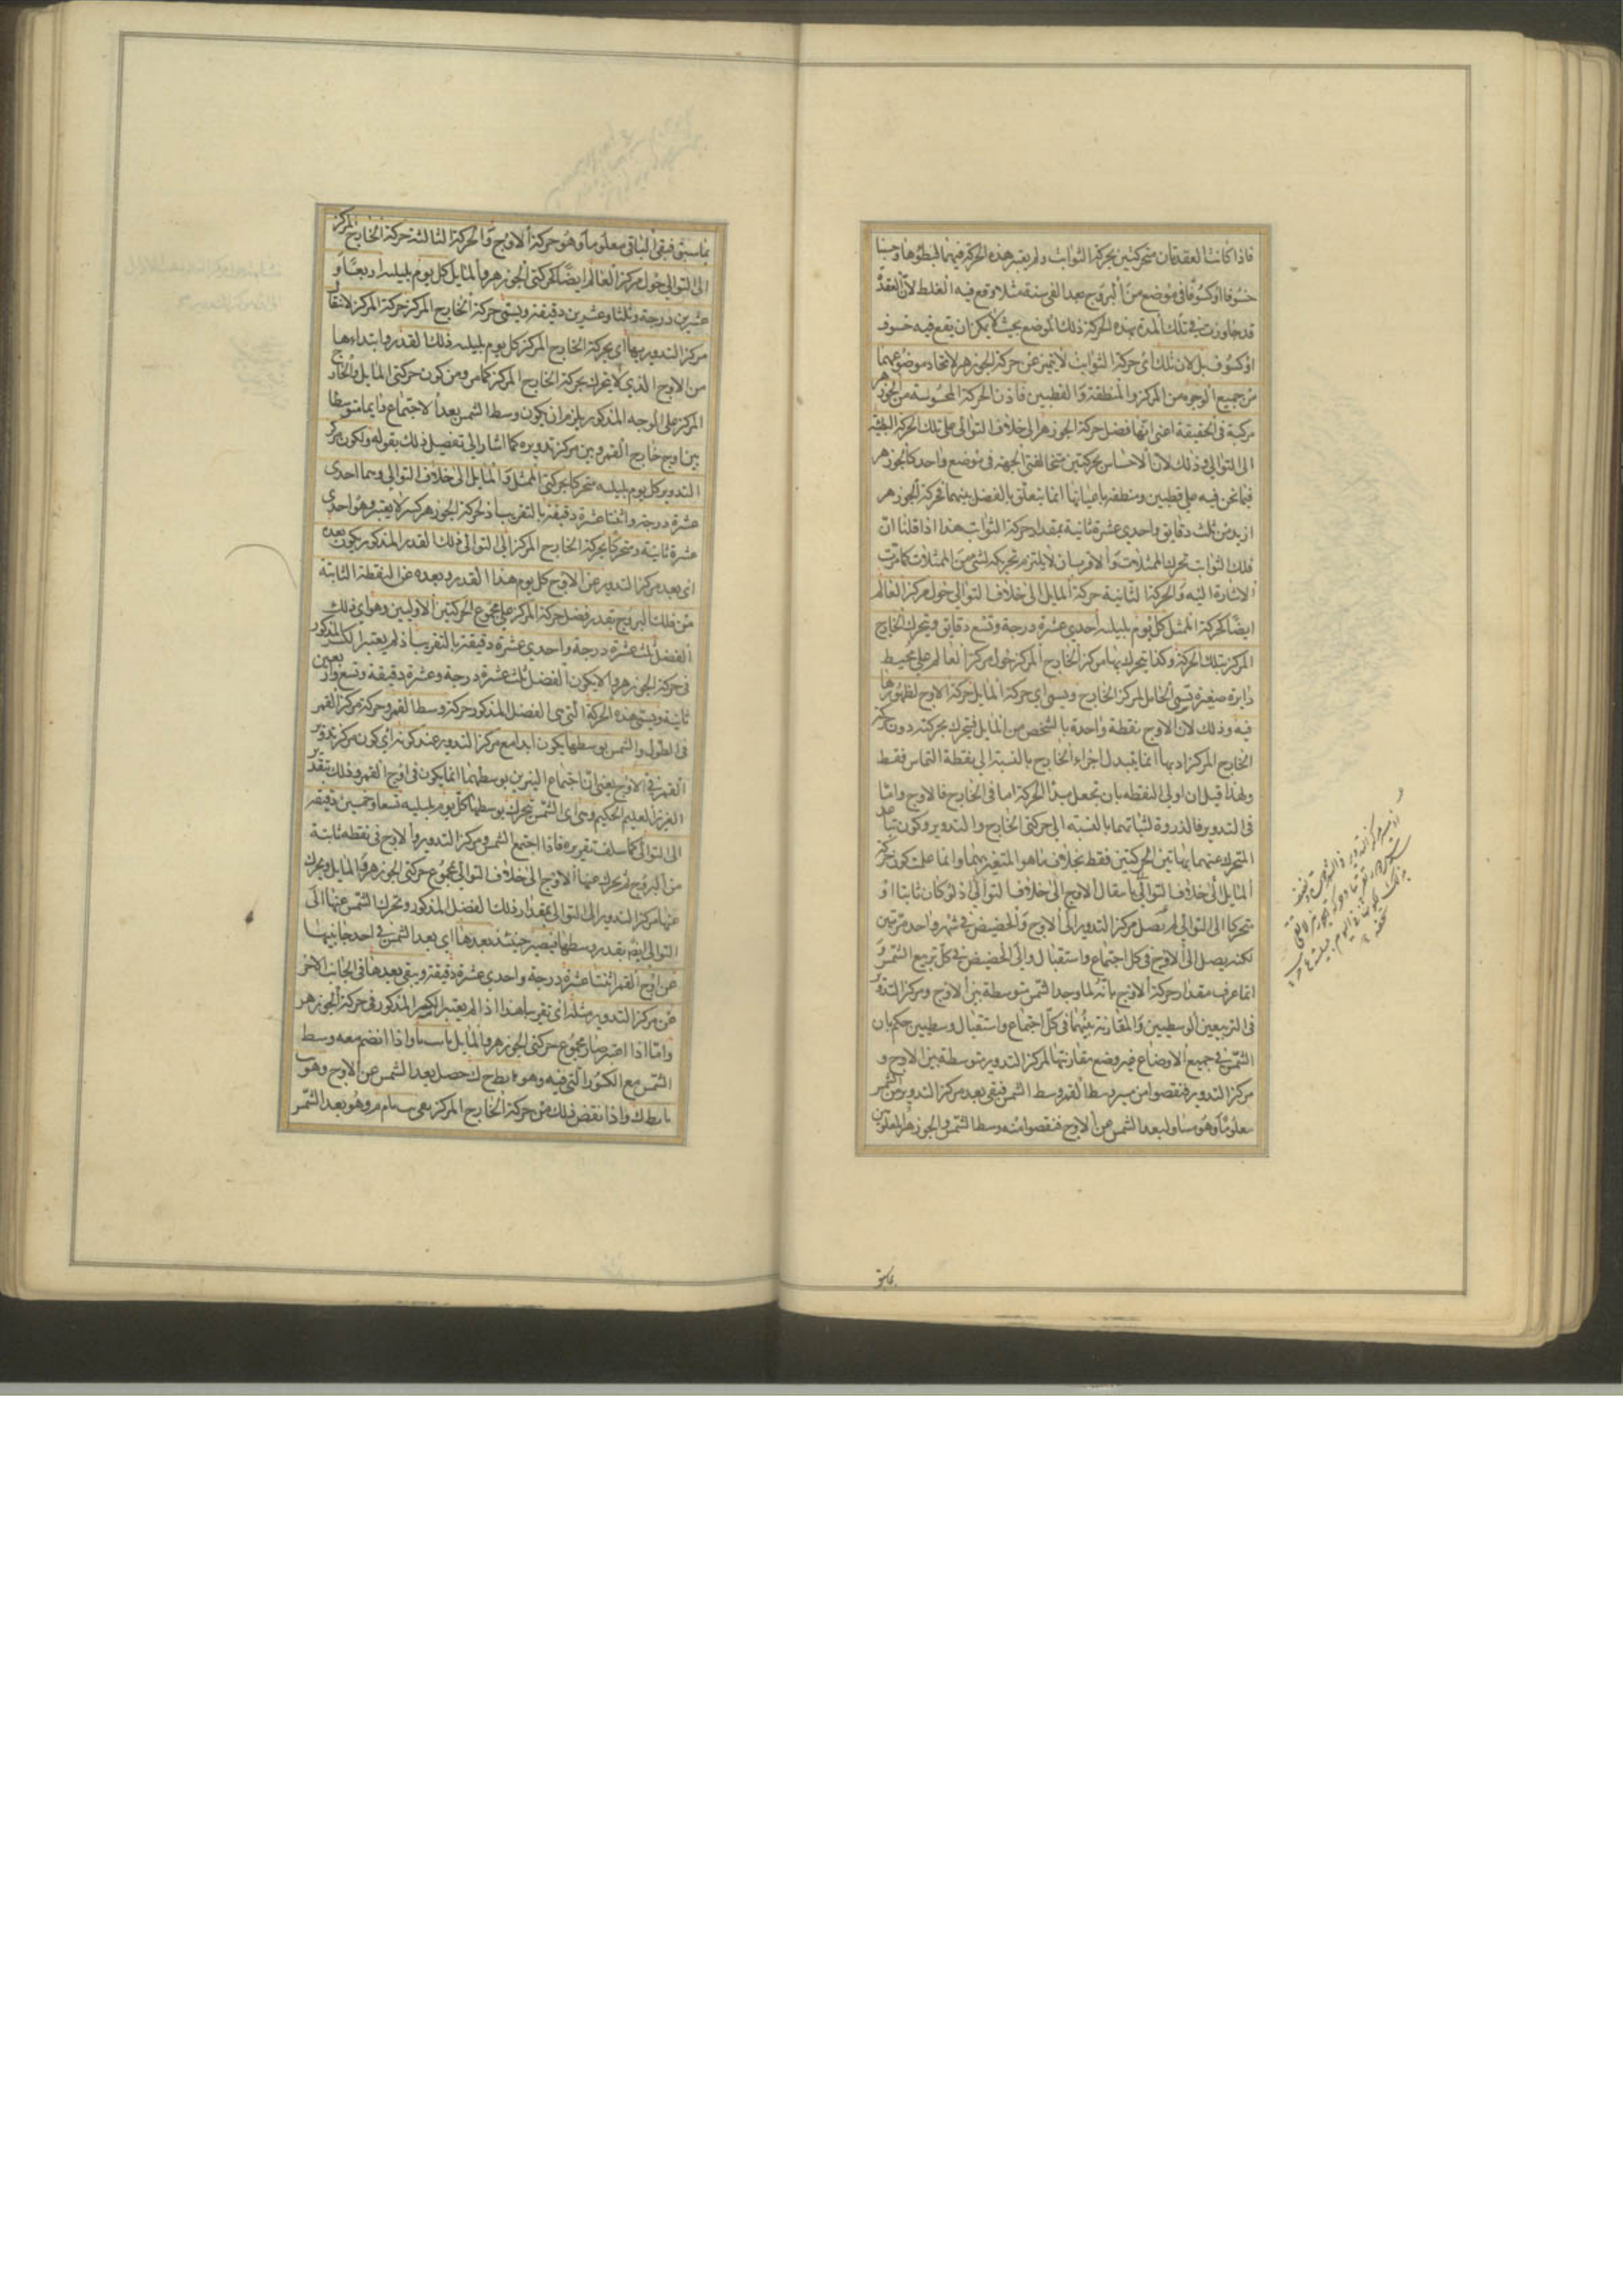 فاذا كانت العقدتان متحركتين بحركة الثوابت ولم يعتبر هذه الحركة فيهما لبطؤها وحسبنا
خسوفا او كسوفا في موضع من البروج بعد الفي سنة مثلا وقع فيه الغلط لان العقدة
قد جاوزت في تلك المدة بهذه الحركة ذلك الموضع بحيث لا يمكن ان يقع فيه خسوف
او كسوف بل لان تلك اى حركة الثوابت لا يتميز عن حركة الجوزهر لاتحاد موضوعهما
من جميع الوجوه من المركز والمنطقة والقطبين فاذن الحركة المحسوسة من الجوزهر
مركبة في الحقيقة اعنى انها فضل حركة الجوزهر الى خلاف التوالي على تلك الحركة البطيئة
الى التوالي وذلك لان الاحساس بحركتين مختلفتي الجهة في موضع واحد كالجوزهر
فيما نحن فيه على قطبين ومنطقة باعيانها انما يتعلق بالفضل بينهما فحركة الجوزهر
ازيد من ثلث دقايق واحدي عشرة ثانية بمقدار حركة الثوابت هذا اذا قلنا ان
فلك الثوابت تحرك الممثلات والا فرسان لا يلتزم تحريكه لشئ من الممثلات كما مرت
الاشارة اليه والحركة الثانية حركة المايل الى خلاف التوالي حول مركز العالم
ايضا كحركة الممثل كل يوم بليلته احدي عشرة درجة وتسع دقايق ويتحرك الخارج
المركز بتلك الحركة وكذا يتحرك بها مركز الخارج المركز حول مركز العالم على محيط
دايرة صغيرة تسمى الحامل المركز الخارج ويسمى اي حركة المايل حركة الاوج لظهورها
فيه وذلك لان الاوج نقطة واحدة بالشخص من المايل فيتحرك بحركته دون حركة
الخارج المركز اذ بها انما يتبدل اجزاء الخارج بالنسبة الى نقطة التماس فقط
ولهذا قيل ان اولي النقطه بان تجعل مبدأ الحركة اما في الخارج فالاوج واما
في التدوير فالذروة لثباتهما بالنسبة الى حركتي الخارج والتدوير وكون تباعد
المتحرك عنهما بهاتين الحركتين فقط بخلاف ما هو المتغير بهما وانما علمت كون حركة
المايل الى خلاف التوالي بانتقال الاوج الى خلاف التوالي اذ لو كان ثابتا او
متحركا الى التوالي لم يصل مركز التدوير الى الاوج والحضيض في شهر واحد مرتين
لكنه يصل الى الاوج في كل اجتماع واستقبال والى الحضيض في كل تربيع الشمس و
انما عرف مقدار حركة الاوج بانه لما وجد الشمس متوسطة بين الاوج ومركز التدوير
في التربيعين الوسطيين والمقارنة بينهما في كل اجتماع واستقبال وسطيين حكم بان
الشمس في جميع الاوضاع غير وضع مقارنتها لمركز التدوير متوسطة بين الاوج و
مركز التدوير فنقصوا من مسير وسط القمر وسط الشمس فبقى بعد مركز التدوير من الشمس
معلوما وهو مساو لبعد الشمس من الاوج فنقصوا منه وسط الشمس والجوزهر المعلومين
بماسبق
بماسبق فبقى الباقي معلوما وهو حركة الاوج والحركة الثالثة حركة الخارج المركز
الى التوالي حول مركز العالم ايضا كحركتي الجوزهر والمايل كل يوم بليلته اربعا و
عشرين درجة وثلثا وعشرين دقيقة ويسمى حركة الخارج المركز حركة المركز لانتقال
مركز التدوير بها اى بحركة الخارج المركز كل يوم بليلته ذلك القدر وابتداءها
من الاوج الذي لا يتحرك بحركة الخارج المركز كما مر ومن كون حركتي المايل والخارج
المركز على الوجه المذكور يلزم ان يكون وسط الشمس بعد الاجتماع دايما متوسطا
بين اوج خارج القمر وبين مركز تدويره كما اشار الى تفصيل ذلك بقوله ولكون مركز
التدوير كل يوم بليلته متحركا بحركتي الممثل والمايل الى خلاف التوالي وهما احدى
عشرة درجة واثنتا عشرة دقيقة بالتقريب اذ لحركة الجوزهر كسر لا يعتبر وهو احدى
عشرة ثانية ومتحركا بحركة الخارج المركز الى التوالي ذلك القدر المذكور يكون بعده
اى بعد مركز التدوير عن الاوج كل يوم هذا القدر وبعده عن النقطة الثابتة
من فلك البروج بقدر فضل حركة المركز على مجموع الحركتين الاوليين وهو اى ذلك
الفضل ثلث عشرة درجة واحدي عشرة دقيقة بالتقريب اذ لم يعتبر الكسر المذكور
في حركة الجوزهر والا يكون الفضل ثلث عشرة درجة وعشرة دقيقة وتسع واربعين
ثانية ويسمى هذه الحركة التي هي الفضل المذكور حركة وسط القمر وحركة مركز القمر
في الطول والشمس بوسطها يكون ابدا مع مركز التدوير عند كونه اي كون مركز تدوير
القمر في الاوج يعني ان اجتماع النيرين بوسطهما انما يكون في اوج القمر وذلك بتقدير
العزيز العليم الحكيم وهى اى الشمس تتحرك بوسطها كل يوم بليلته تسعا وخمسين دقيقة
الى التوالي كما سلف تقريره فاذا اجتمع الشمس ومركز التدوير والاوج في نقطه ثابتة
من البروج ثم تحرك عنها الاوج الى خلاف التوالي بمجموع حركتي الجوزهر والمايل وتحرك
عنها مركز التدوير الى التوالي بمقدار ذلك الفضل المذكور وتحرك الشمس عنها الى
التوالي ايضا بقدر وسطها فيصير حينئذ بعدها اى بعد الشمس في احد جانبيها
عن اوج القمر اثنتا عشرة درجة واحدي عشرة دقيقة ويبقى بعدها في الجانب الاخر
عن مركز التدوير مثله اى تقريبا هذا اذا لم يعتبر الكسر المذكور في حركة الجوزهر
واما اذا اعتبر صار مجموع حركتي الجوزهر والمايل واذا انضم معه وسط
الشمس مع الكسور التي فيه وهو حصل بعد الشمس عن الاوج وهو
واذا نقص ذلك من حركة الخارج المركز بقى وهو بعد الشمس